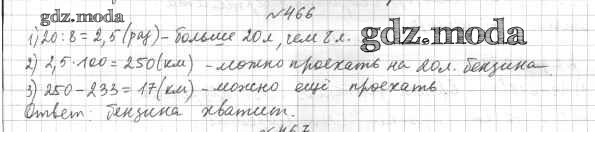 №466
gdz.moda
1) 20:8=2,5(раз)-больше 20л, чем 8л.
gdz.moda
2) 2,5·100=250(км) -можно проехать на 20л. бензина
3) 250-233=17(км)-можно ещё проехать.
Ответ: бензина хватит.
№467